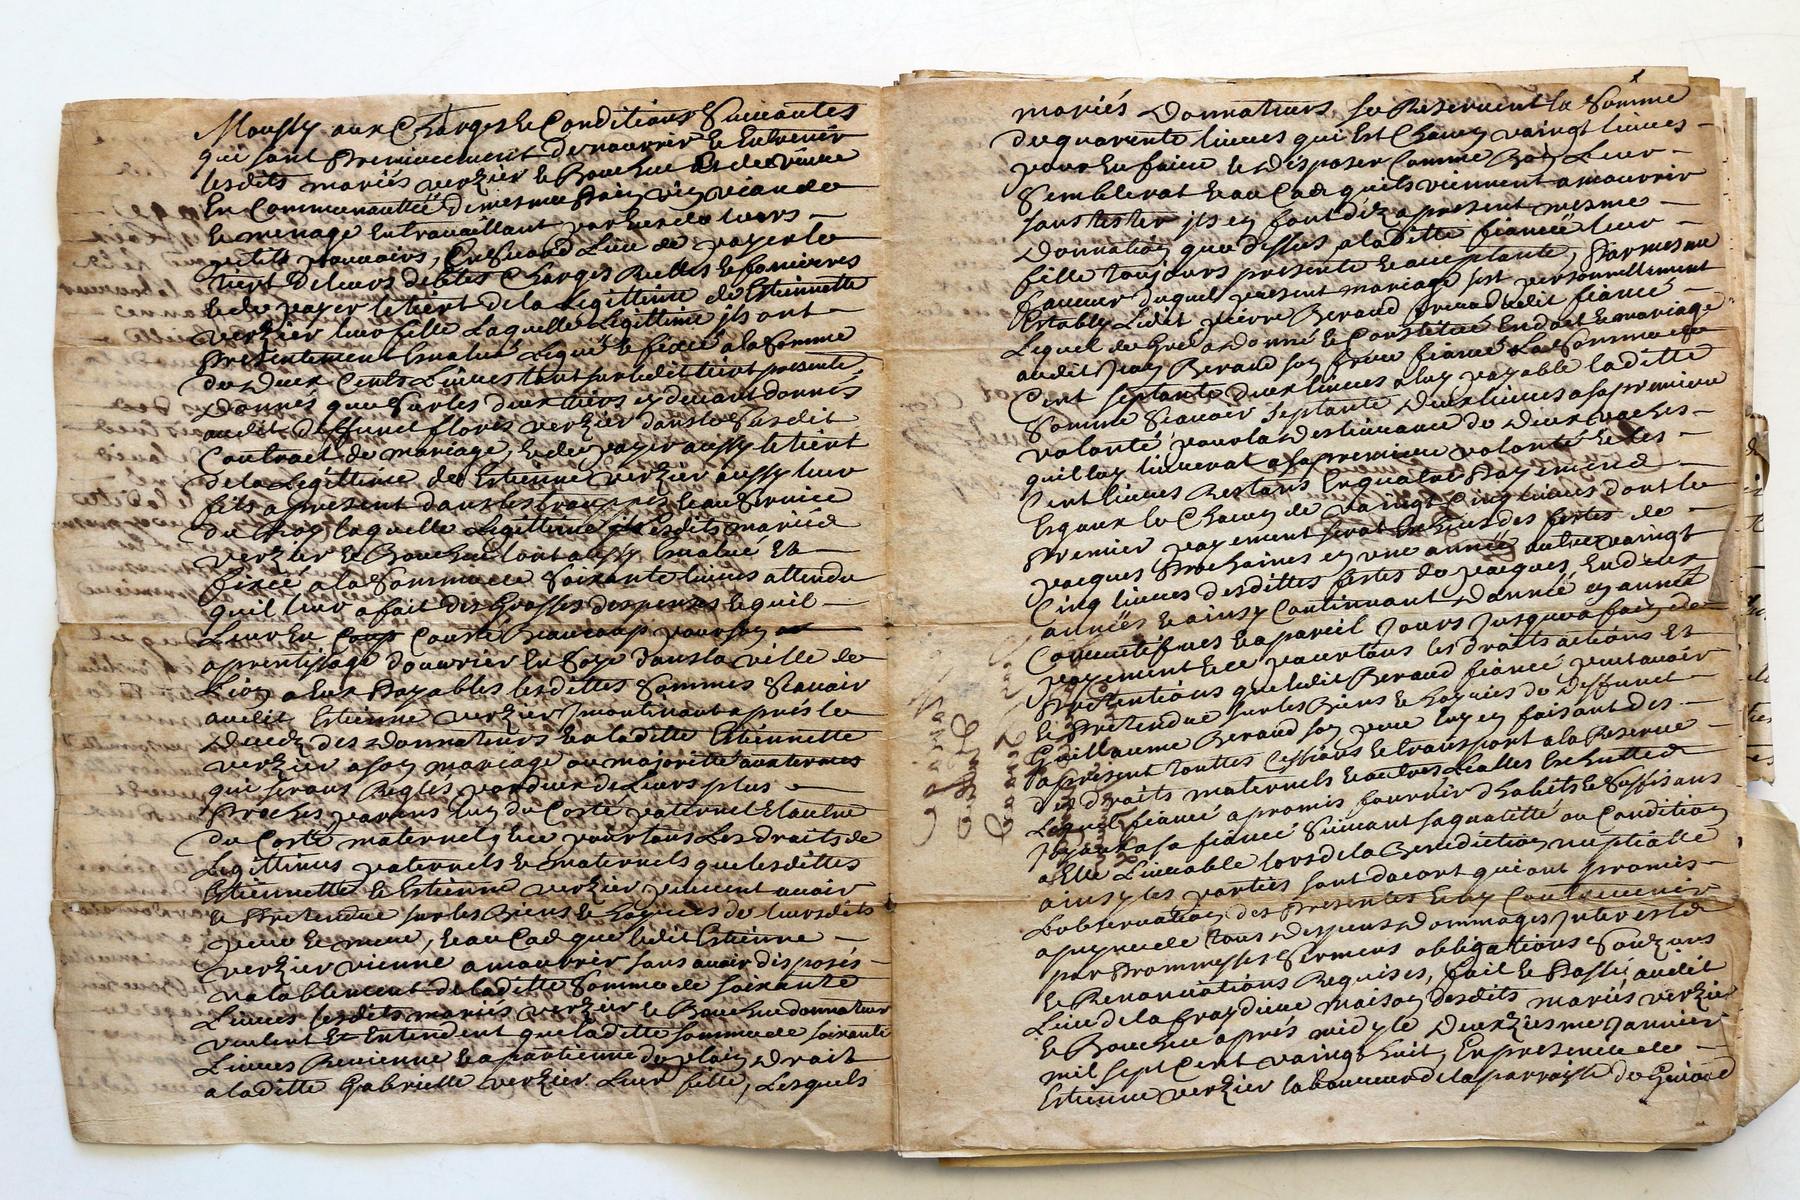 Moussy aux Charges & Conditions Suivantes
qui sont Premierement de nourrir & Entrenir
lesdits mariés verzier & Bouchue Et de vivre
En Communauttée dimesme Pain vin viande
& menage En travaillant par Eux de leurs
petits pouvoirs, En Second Lieu de payer le
tiert de leurs debtes Charges Reelles & fonsieres
& de payer le tiert de la Legittime de Estiennette
verzier leur fille Laquelle Legittime ils ont
Presentement Evalué Liqué & fixée a la Somme
de deux Cents Livres tant sur ledit tiert presente
Donnés que Sur les deux tiers cy devant donnés
audit deffunct flores verzier dans le Susdit
Contract de mariage, & de payer aussy le tiert
de la Legittime de Estienne verzier aussy leur
fils a present dans les trouppes & au Service
du Roy laquelle Legittime lesdits mariés
verzier & Bouchue l'ont aussy Evalué Et
fixée a la Somme de Soixante livres attendu
quil leur a fait des Grosses despenses & quil
Leur En Cousté Beaucoup pour son
aprentissage douvrier En Soye dans la ville de
Lion a Eux Payables lesdittes Sommes Scavoir
audit Estienne verzier Jncontinant apres le
Deces des Donnateurs & a la ditte Estiennette
verzier a son mariage ou majoritté aux termes
qui serons Regles par deux de leurs plus
Proches parens lun du Costé paternel & lautre
du Costé maternel, & ce pour tous Les droits de
Legittimes paternels & maternels que lesdittes
Estiennette & Estienne verzier peuvent avoir
& Pretendre sur les Biens & hoyries de leursdits
pere & mere, & au Cas que ledit Estienne
verzier vienne a mourrir sans avoir disposés
valablement de laditte Somme de soixante
Livres lesdits mariés verzier & Bouchue donnateurs
veulent Et Entendent que laditte somme de soixante
Livres Revienne & apartienne de plain Droit
a laditte Gabrielle verzier leur fille, Lesquels
mariés Donnateurs se Reservent la Somme
de quarente livres qui Est Chacun vaingt livres
pour En faire & disposer Comme Bon Leur
Semblerat & au Cas quils viennent a mourrir
sans tester ils en font dez a present mesme
Donnation que dessus a laditte fiancée leur
fille toujours presente & acceptante, Parmesme
faveur duquel present mariage sest personnellement
Estably Ledit pierre Beraud frere dudit fiancé
Lequel de Gré a Donné & Constitué En dot & mariage
audit Jean Beraud son frere fiancé La Somme de
Cent septante deux livres a luy payable laditte
Somme Scavoir Septante Deux livres a sa premiere
volonté, pour la Deslivrance de Deux vaches
quil luy livrerat a sa premiere volonté & les
Cent livres Restans En quatre Payemens
Esgaux le Chacun de vaingt Cinq livres dont le
Premier payement serat En Jcus des festes de
pacques Prochaines en une année autres vaingt
Cinq livres desdittes festes de pacques, En deux
années & ainsy Continuant D'année en année
Consecutifves & a pareil Jours Jusqua fain de
payement & ce pour tous les droits actions Et
Pretentions que ledit Beraud fiancé peut avoir
& Pretendre sur les Biens & hoyries de Deffunct
Guillaume Beraud son pere luy en faisant des
a present touttes Cessions & transport a la Reserve
des droits maternels & autres Lealles Escheuttes
Lequel fiancé a promis fournir d'habits &
Joyaux a sa fiancée Suivant sa qualitté ou Condition
a Elle Livrable lors de la Benediction nuptialle
ainsy les parties sont dacort qui ont promis
L'observation des Presentes & ny Contrevenir
a peyne de tous Despens Dommages Jnterests
par Prommesses Sermens obligations Souz
& Renonciations Requises, fait & Passé, audit
Lieu de la fraydiere maison desdits mariés verzier
& Bouchue apres midy le Deuxziesme Janvier
mil sept Cent vaingt huit, En presence de
Estienne verzier laboureur de la parroisse de